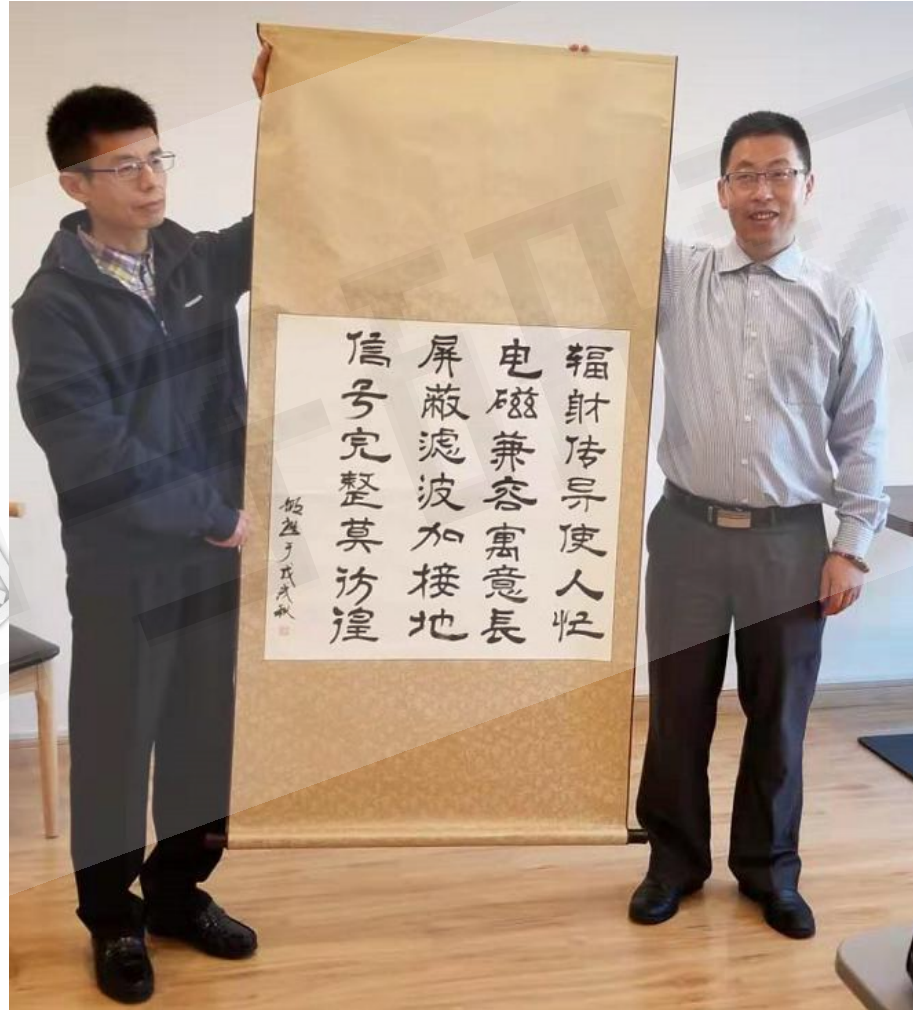 辐射传导使人忙
电磁兼容寓意長
屏蔽滤波加接地
信号完整莫彷徨
于戊戌秋